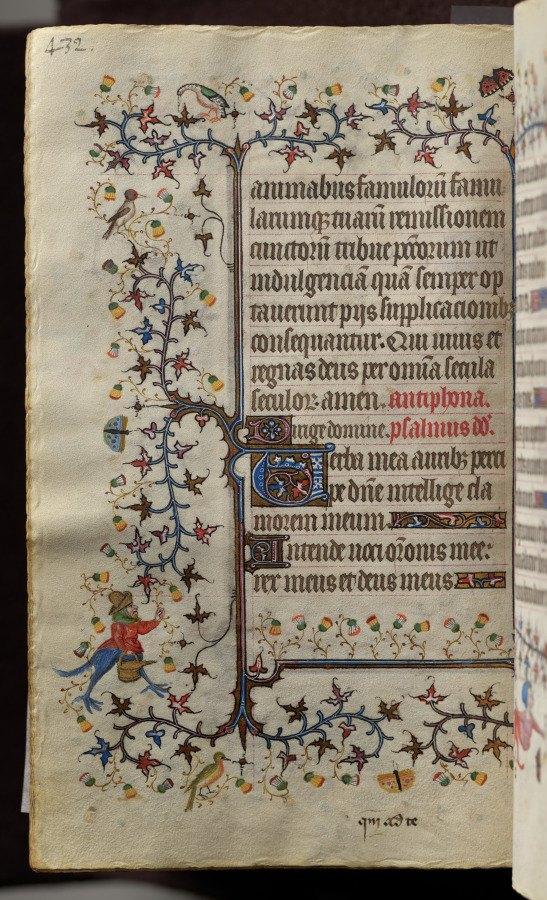 432.
animabus famulorū famu
larumqꝫ tuarū remissionem
cunctorū tribue pccōrum ut
indulgenciā quā semper op
tauerunt pijs supplicacionibꝫ
consequantur. Qui uiuis et
regnas deus per omīa secula
seculoꝝ amen. antiphona.
Dirige domine. psalmus dd̄.
Uerba mea auribꝫ perci
pe dn̄e intellige cla
morem meum.
Intende uoci or̄onis mee:
rex meus et deus meus
qm̄ ad te